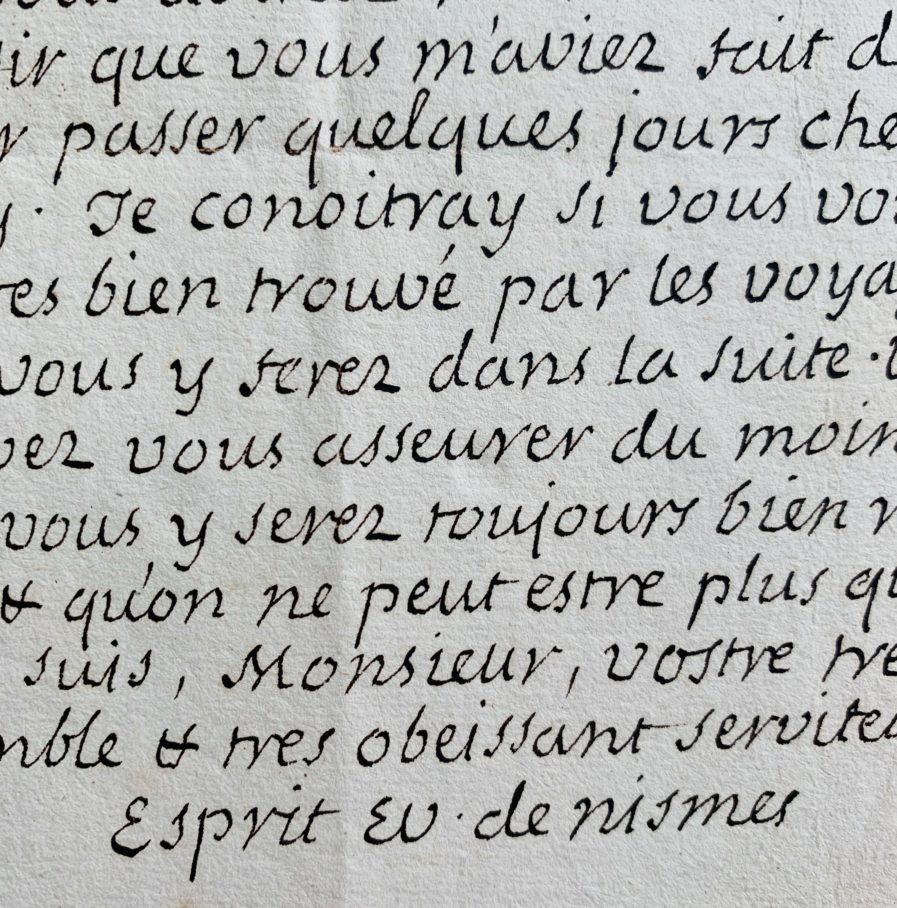 ir que vous m'aviez fait d
r passer quelques jours che
y. Je conoitray si vous vou
tes bien trouvé par les voya
vous y serez dans la suite. v
vez vous asseurer du moin
vous y serez toujours bien v
& qu'on ne peut estre plus qu
suis, Monsieur, vostre tre
mble & tres obeissant serviteu
Esprit Ev. de nismes